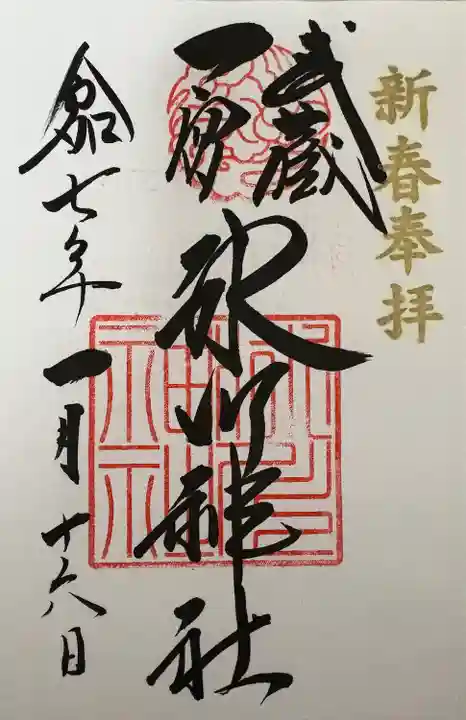 新春奉拝
武蔵
一宮
氷川神社
令和七年一月十六日